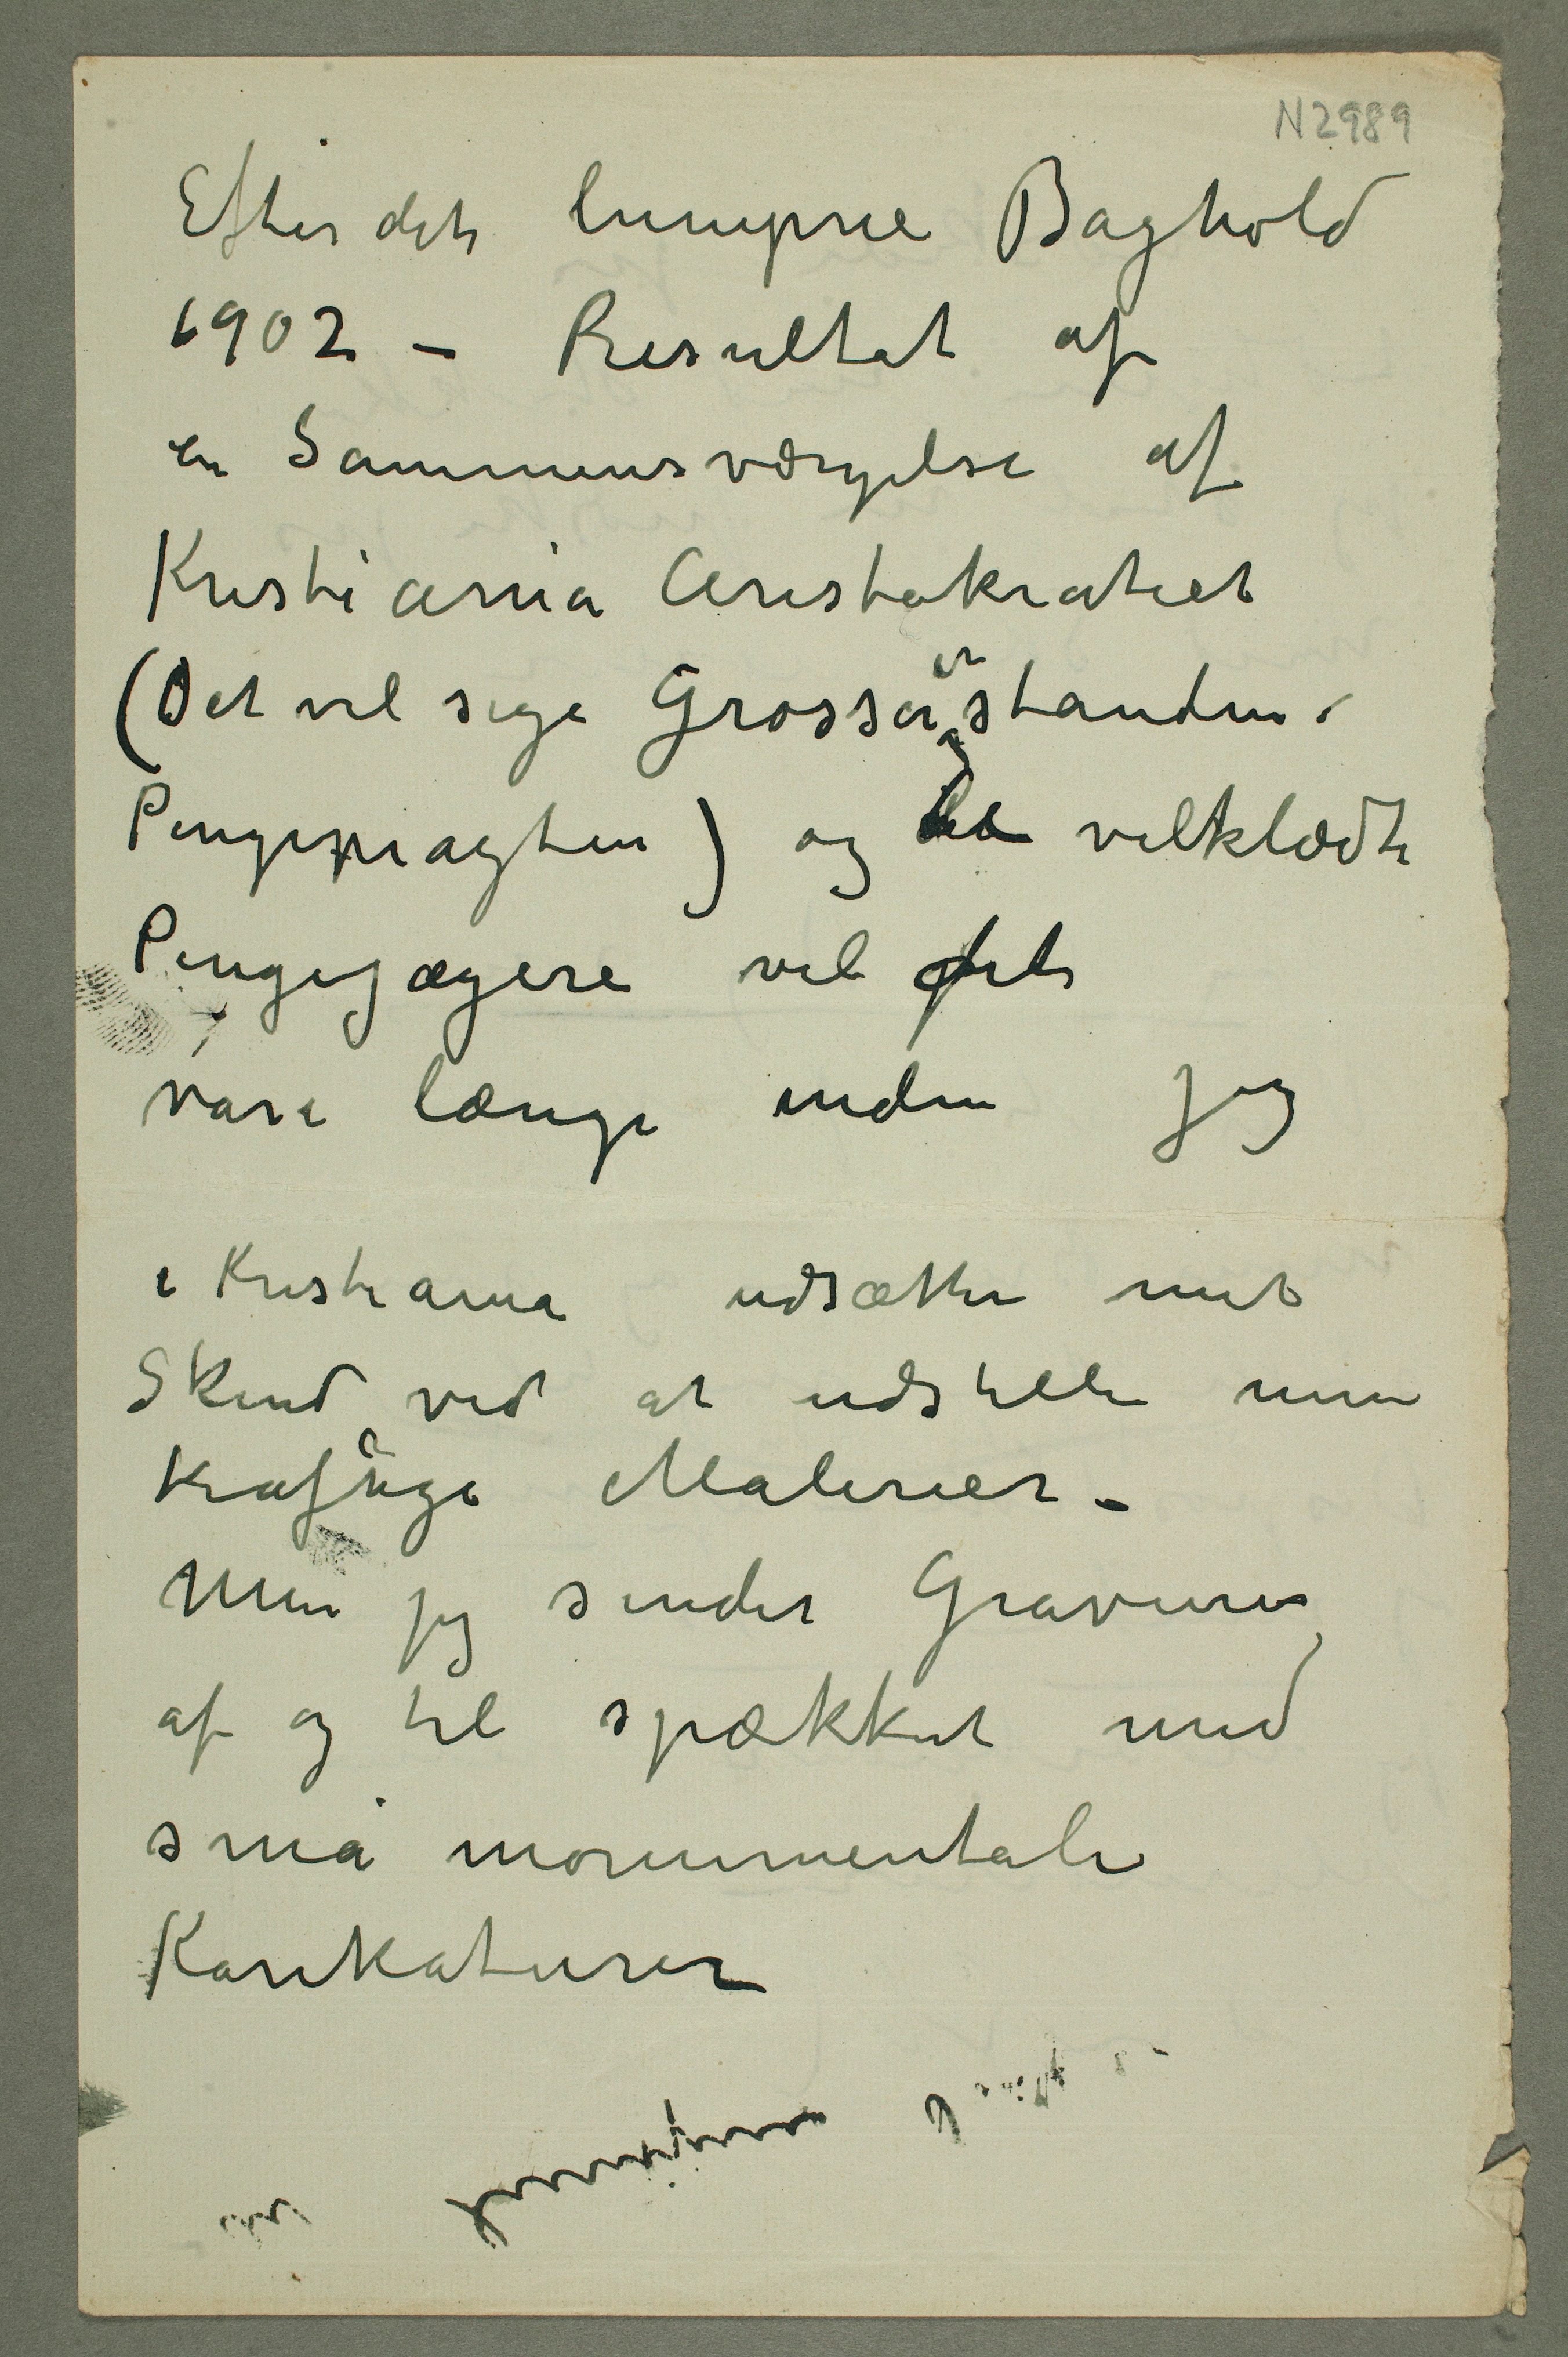 N 2989
Efter det lumpne Baghold
1902 – Resultat af
en Sammensværgelse af
Kristiania Aristokratiet
(Det vil sige Grosserer standen.
Pengepragten) og de velklædte
Pengejægere vil det
vare længe inden jeg
i Kristiania udsætter mit
Skind ved at udstille mine
kraftige Malerier –
Men jeg sender Gravurer
af og til spækket med
små monumentale
Karikaturer